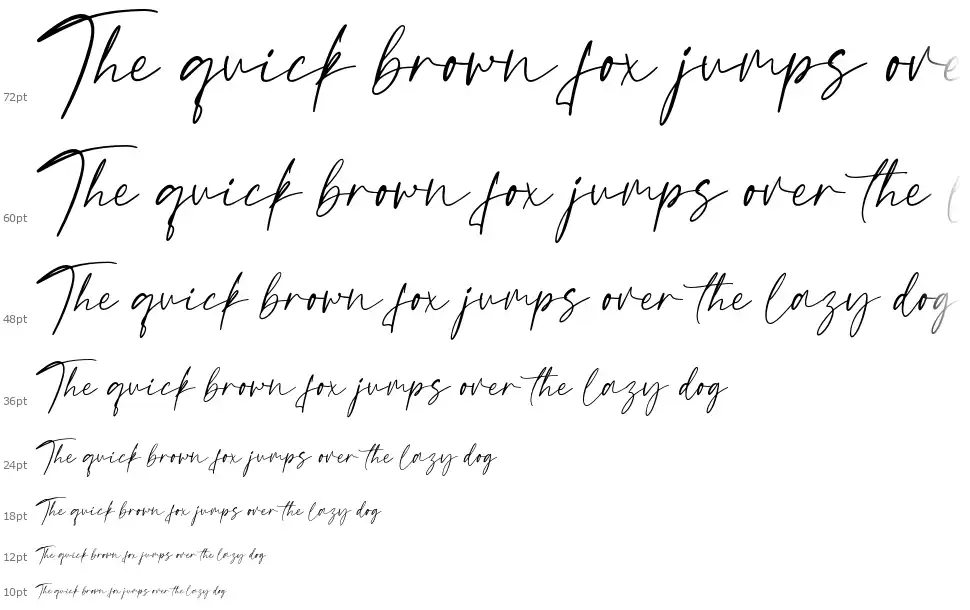 72pt The quick brown fox jumps ove
60pt The quick brown fox jumps over the l
48pt The quick brown fox jumps over the lazy dog
36pt The quick brown fox jumps over the lazy dog
24pt The quick brown fox jumps over the lazy dog
18pt The quick brown fox jumps over the lazy dog
12pt The quick brown fox jumps over the lazy dog
10pt The quick brown fox jumps over the lazy dog